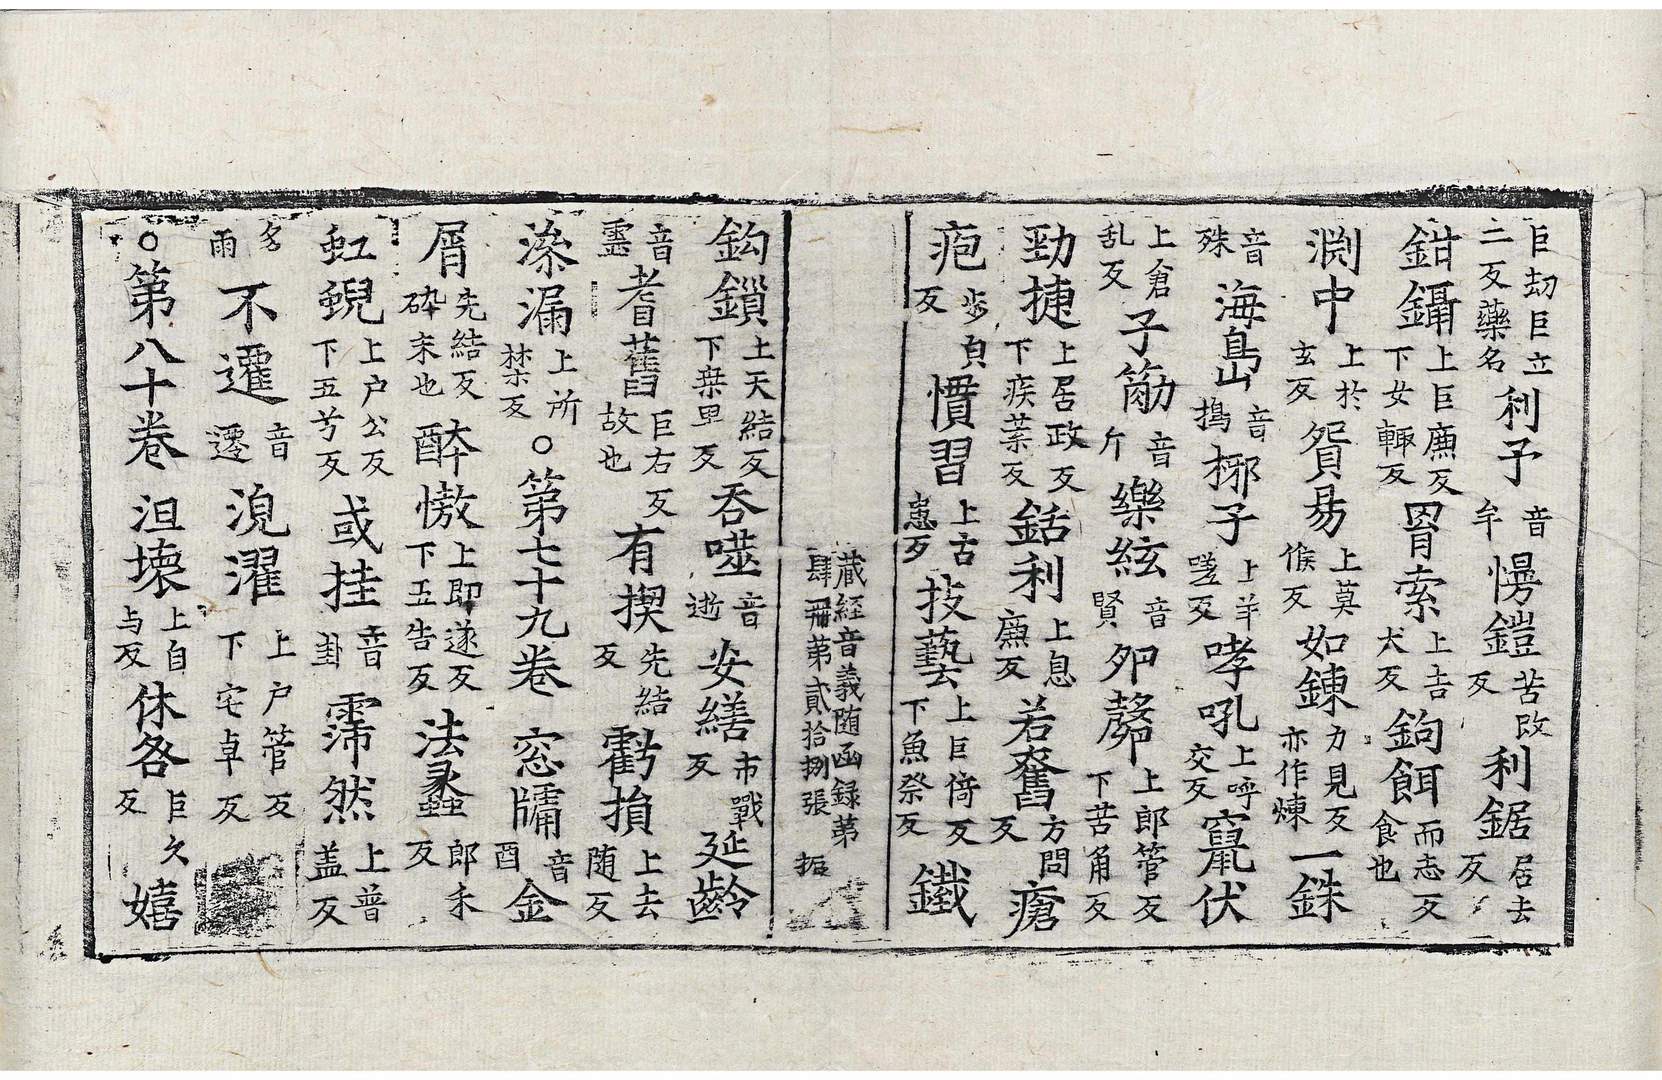 巨刧巨立二反藥名利予音牟慢鎧苦改反利鋸居去反
鉗鑷上巨廉反下女輙反罥索上吉犬反鉤餌而志反食也
渕中上於玄反貿易上莫候反如鍊力見反亦作煉一銖
音殊海島音擣梛子上羊嗟反哮吼上呼交反竄伏
上倉乱反子筋音斤樂絃音賢夘㱿上郎管反下苦角反
勁捷上居政反下疾葉反銛利上息廉反若奮方問反瘡
疱步皃反慣習上古患反技藝上巨倚反下魚祭反鐵
藏経音義随函録第肆冊第貳拾捌張 振
鈎鎖上天結反下桒里反吞噬音逝安繕市戰反延齡
音靈耆舊巨右反故也有揳先結反虧損上去随反
滲漏上所禁反○第七十九卷窓牖音酉金
屑先結反碎末也酔慠上即遂反下五告反法蠡郎禾反
虹蜺上户公反下五兮反或挂音卦霈然上普盖反
多雨不遷音遷浣濯上户管反下宅卓反
○第八十卷沮壞上自与反休咎巨久反嬉